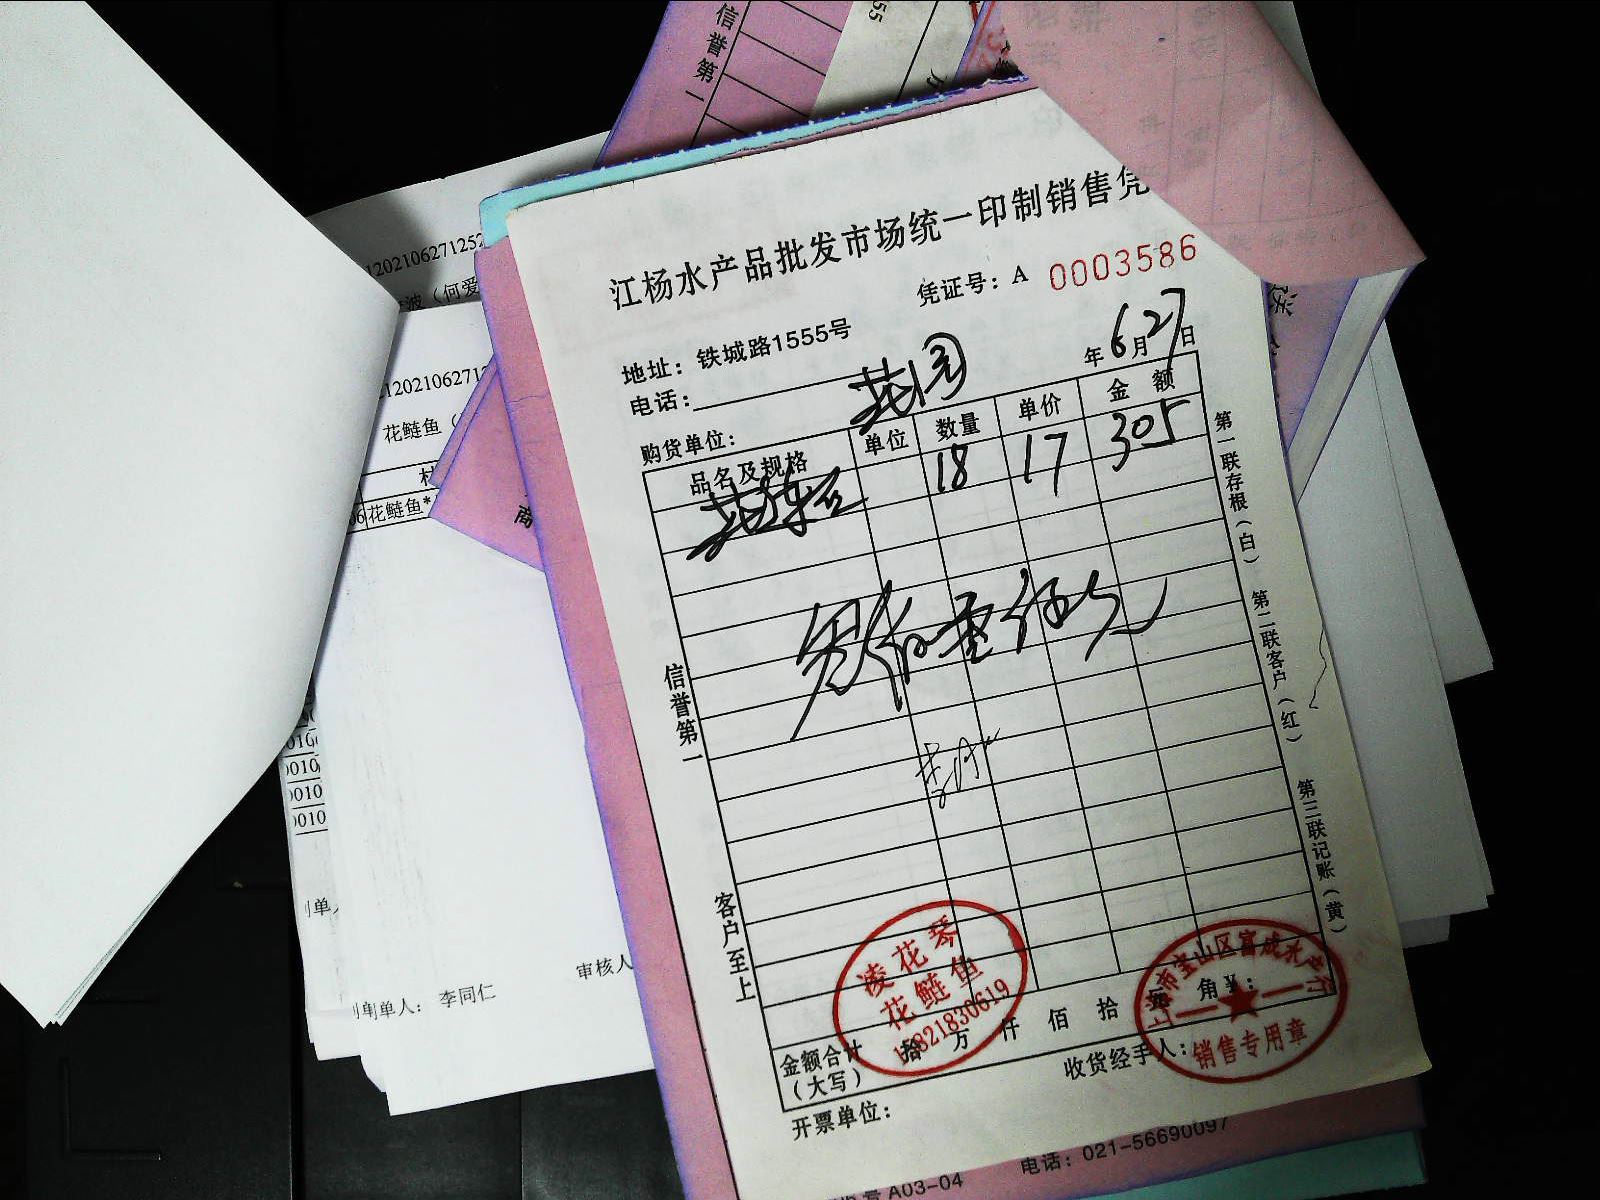 信誉第一
55
1202106271252
波（何爱
1202106271
花鲢鱼（
花鲢鱼*
商
江杨水产品批发市场统一印制销售凭
凭证号：A 0003586
地址：铁城路1555号
年6月27日
电话：
购货单位： 花园
品名及规格 单位 数量 单价 金额
花鲢 18 17 305
信誉第一
客户至上
第一联存根（白） 第二联客户（红） 第三联记账（黄）
凌花琴
花鲢鱼
上海市宝山区富成水产行
销售专用章
金额合计（大写） 拾 万 仟 佰 拾 角 ¥：
收货经手人：
开票单位：
0010
0010
0010
审核人
制单人： 李同仁
A03-04
电话：021-56690097